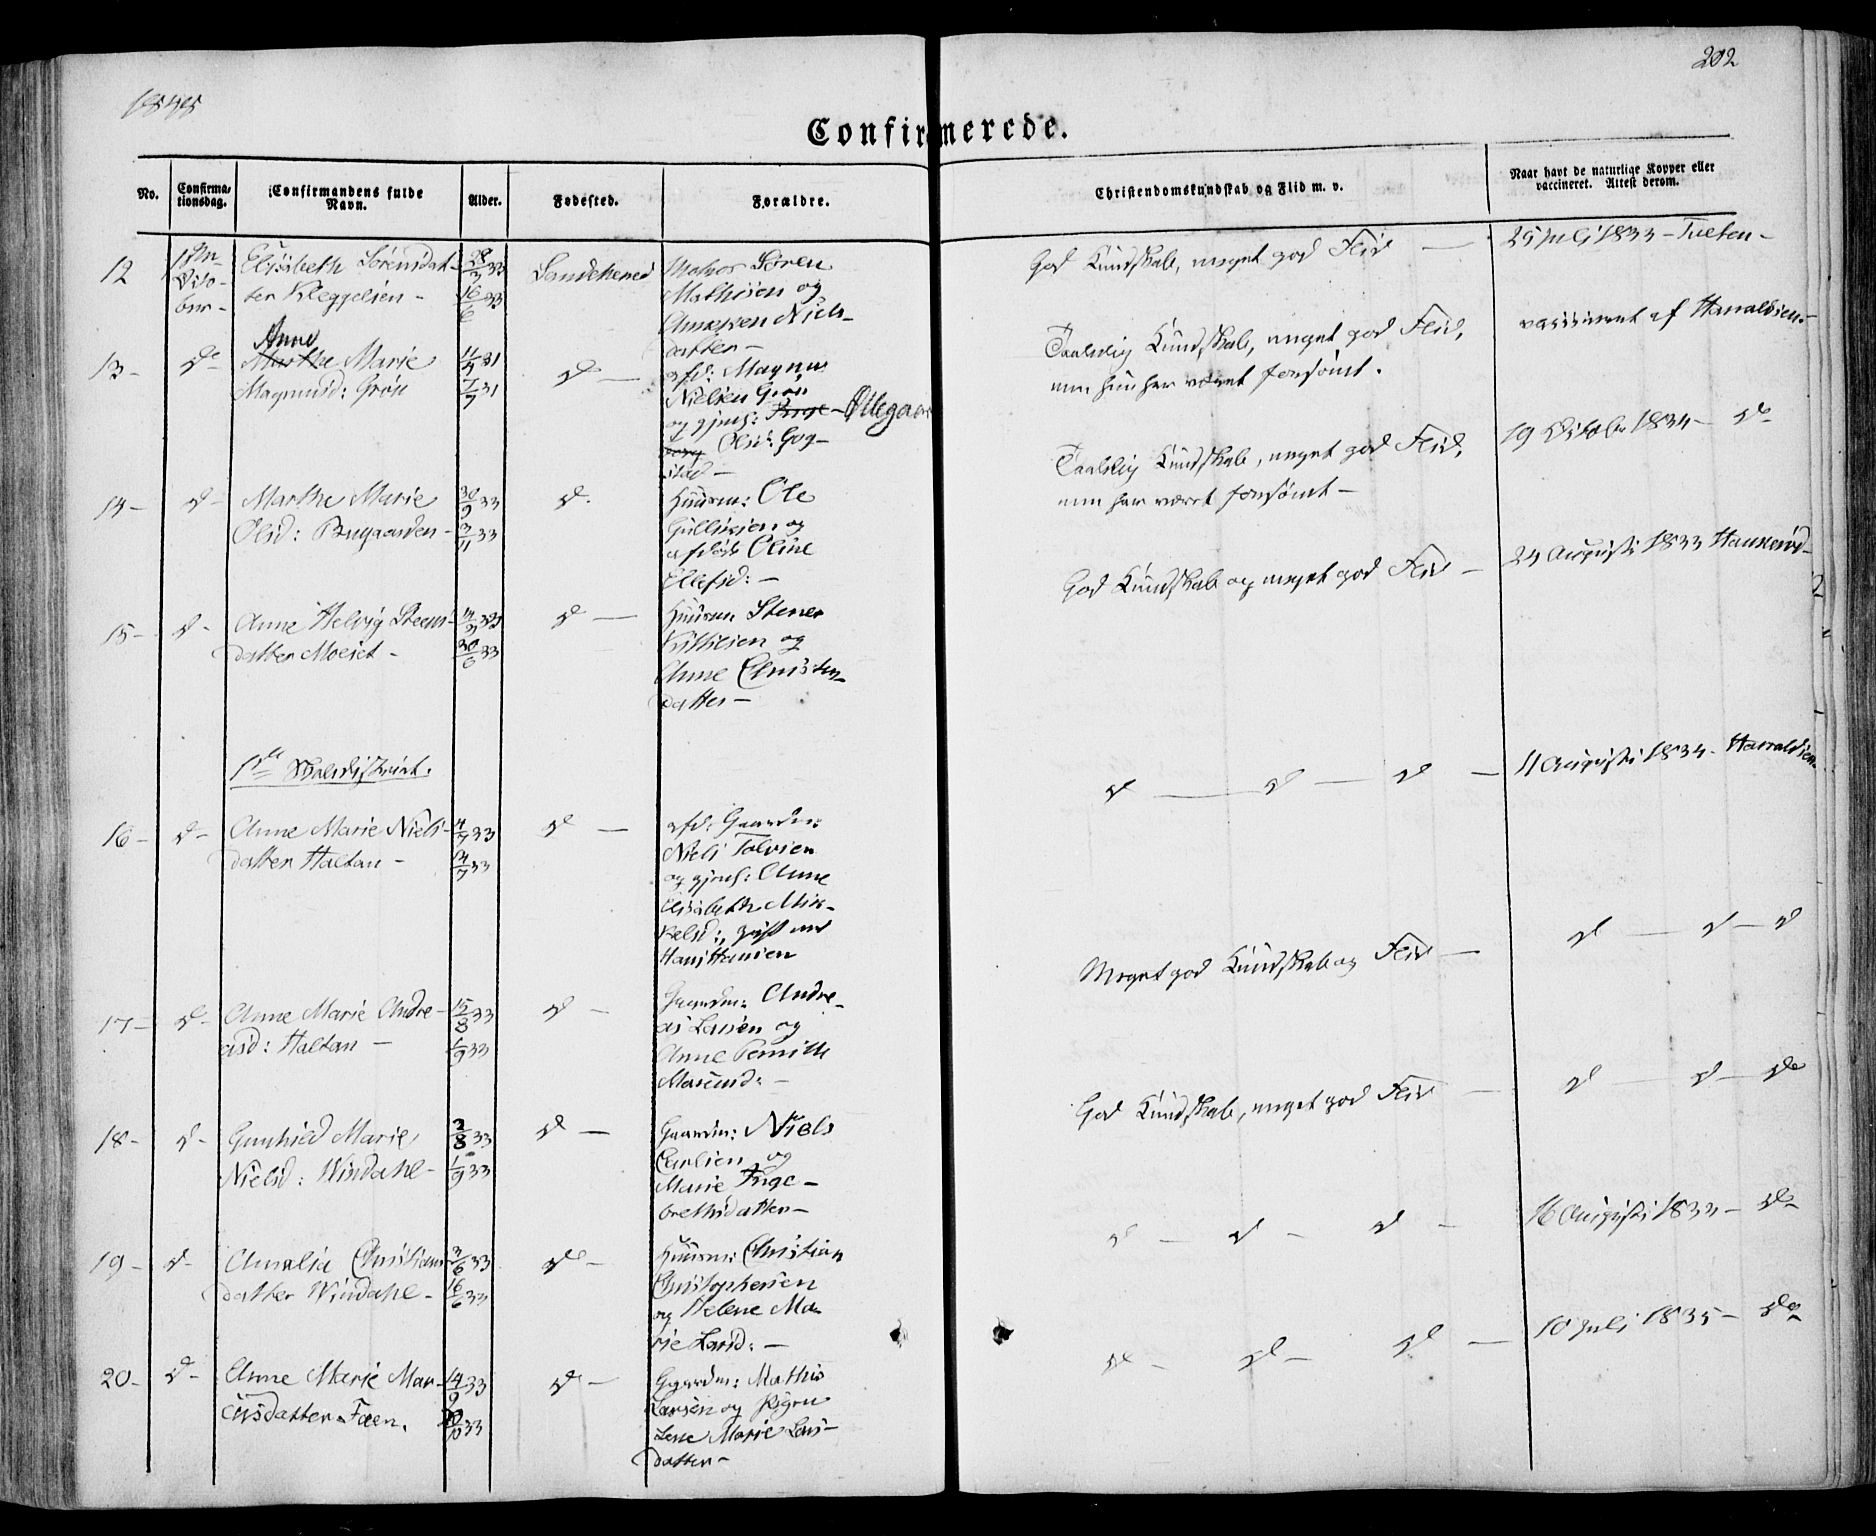 1848
202
Confirmerede.
No.
Confirma-
tionsdag.
Confirmandens fulde
Navn.
Alder.
Fødested.
Forældre.
Christendomskundskab og Flid m. v.
Naar havt de naturlige Kopper eller
vaccineret. Attest derom.
12
Octo-
ber -
Elisabeth Sörensdat-
ter Kleggelsen -
28/3 33
16/6 33
Sandeherred
Søren
Mathisen og
Anneken Niels-
datter -
God Kundskab, meget god Flid -
25 Juli 1833 - Tveten -
13 -
do
Anne
Marthe Marie
Magnusd: Grön
11/4 31
7/7 31
do -
afd: Magnus
Nielsen Grön
og gjens: Inge- Ollegaar
borg Olsd: Gog-
stad -
Taalelig Kundskab, meget god Flid,
men hun har været forsömt.
vaccineret af Haraldsen -
14 -
do -
Marthe Marie
Olsd: Bugaarden -
30/9 33
3/11 33
do.
Huusm: Ole
Gulliksen og
afdöde Oline
Ellefsd: -
Taalelig Kundskab, meget god Flid,
men har været forsömt -
19 Octobr 1834 - do
15 -
do -
Anne Helvig Steens-
datter Moeiet -
30/6 33
do -
Huusm: Stener
og
Anne Christens-
datter -
God Kundskab og meget god Flid -
24 Augusti 1833 Haukeröd -
1ste Skoledistrict.
16 -
do -
Anne Marie Niels-
datter Haltan -
4/7 33
14/7 33
do -
afd: Gaardm:
Niels Tolvsen
og gjens: Anne
Elisabeth Mik-
kelsd:, gift med
Hans Hansen
do - do - do -
11 Augusti 1834 - Haraldsen
17 -
do -
Anne Marie Andre-
asd: Haltan -
15/8 33
1/9 33
do -
Gaardm: Andre-
as Larsen og
Anne Pernille
Marcusd: -
Meget god Kundskab og Flid -
do - do - do
18 -
do -
Gunhild Marie
Nielsd: Windahl -
2/8 33
1/9 33
do -
Gaardm: Niels
Carlsen og
Marie Inge-
brethsdatter -
God Kundskab, meget god Flid -
do - do - do
19 -
do -
Amalia Christians-
datter Windahl -
3/6 33
16/6 33
do -
Huusm: Christian
Christophersen
og Helene Ma-
rie Larsd: -
do - do - do -
16 Augusti 1833 - do
20 -
do -
Anne Marie Mar-
cusdatter Fæen.
14/9 33
20/10 33
do -
Gaardm: Mathis
Larsen og
Lene Marie Lars-
datter -
do - do - do -
10 Juli 1835 - do